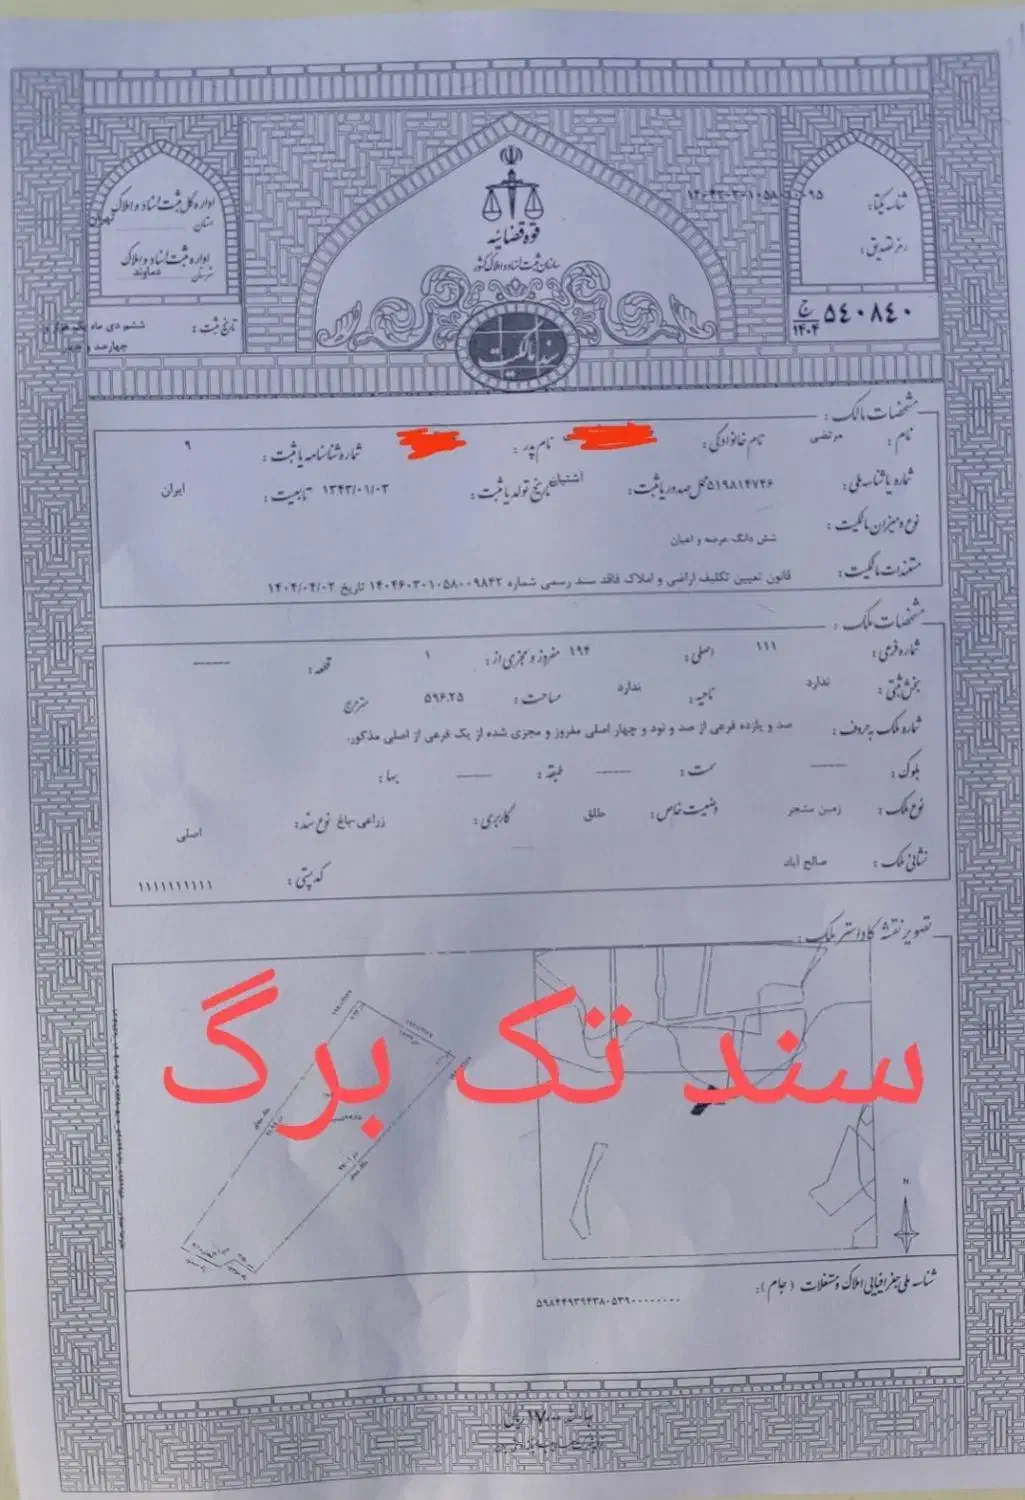 اداره کل ثبت اسناد و املاک
استان تهران
اداره ثبت اسناد و املاک
شهرستان دماوند
تاریخ ثبت : ششم دی ماه یک هزار و
چهارصد و چهار
قوه قضائیه
سازمان ثبت اسناد و املاک کشور
سند مالکیت
شناسه یکتا :
رمز تصدیق :
۵٤۰۸٤۰ ج ۱۴۰۴
مشخصات مالک :
نام : مرتضی نام خانوادگی : نام پدر : شماره شناسنامه یا ثبت : ۹
شماره یا شناسه ملی : ۵۱۹۸۱۴۷۴۶ محل صدور یا ثبت : آشتیان تاریخ تولد یا ثبت : ۱۳۴۳/۰۱/۰۳ تابعیت : ایران
نوع و میزان مالکیت : شش دانگ عرصه و اعیان
مستندات مالکیت : قانون تعیین تکلیف اراضی و املاک فاقد سند رسمی شماره ۱۴۰۴۶۰۳۰۱۰۵۸۰۰۹۸۴۲ تاریخ ۱۴۰۴/۰۴/۰۲
مشخصات ملک :
شماره فرعی : ۱۱۱ اصلی : ۱۹۴ مفروز و مجزی از : ۱ قطعه :
بخش ثبتی : ندارد ناحیه : ندارد مساحت : ۵۹۶.۲۵ مترمربع
شماره ملک به حروف : صد و یازده فرعی از صد و نود و چهار اصلی مفروز و مجزی شده از یک فرعی از اصلی مذکور.
بلوک : سمت : طبقه : بها :
نوع ملک : زمین مشجر وضعیت خاص : طلق کاربری : زراعی-باغ نوع سند : اصلی
نشانی ملک : صالح آباد کد پستی : ۱۱۱۱۱۱۱۱۱۱
تصویر نقشه کاداستر ملک :
سند تک برگ
N
شناسه ملی جغرافیایی املاک و مستغلات (جام) :
۵۹۸۴۴۹۳۹۴۳۸۰۵۳۹۰۰۰۰۰۰۰۰